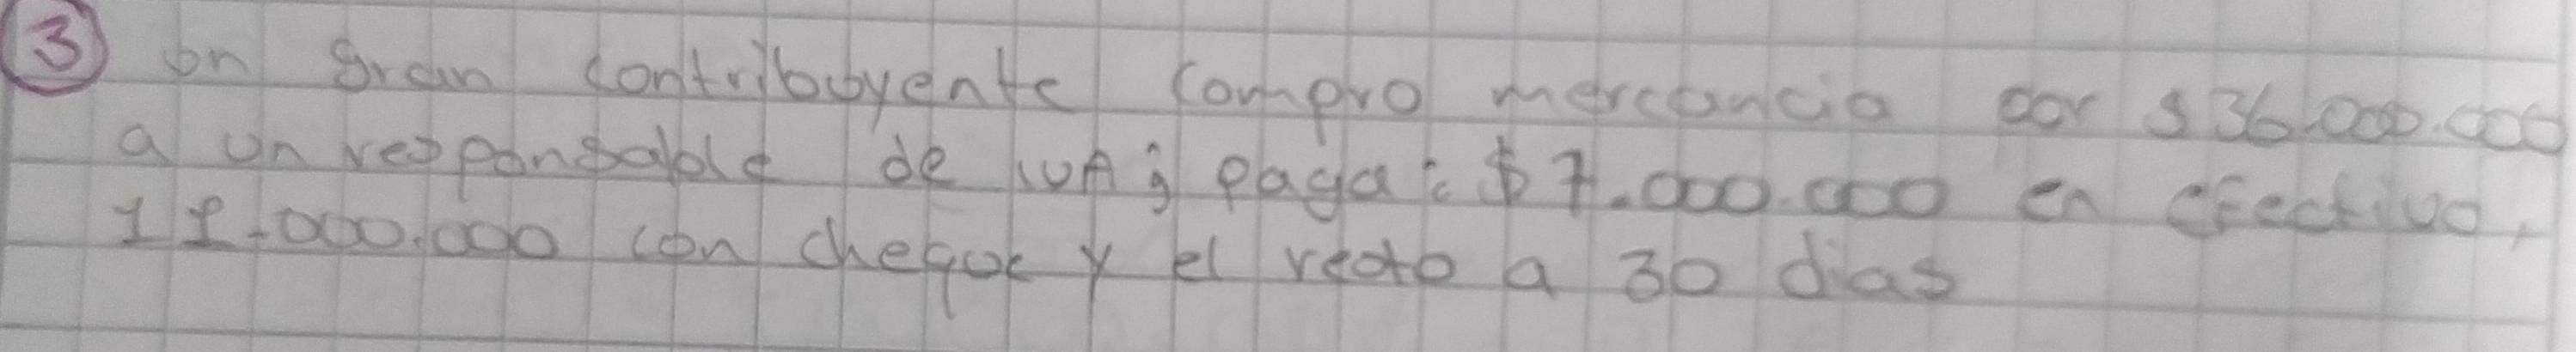 ③ un gran contribuyente compro mercancia por $36.000.000
a un responsable de iva; paga: $7.000.000 en efectivo,
11.000.000 con cheque y el resto a 30 dias